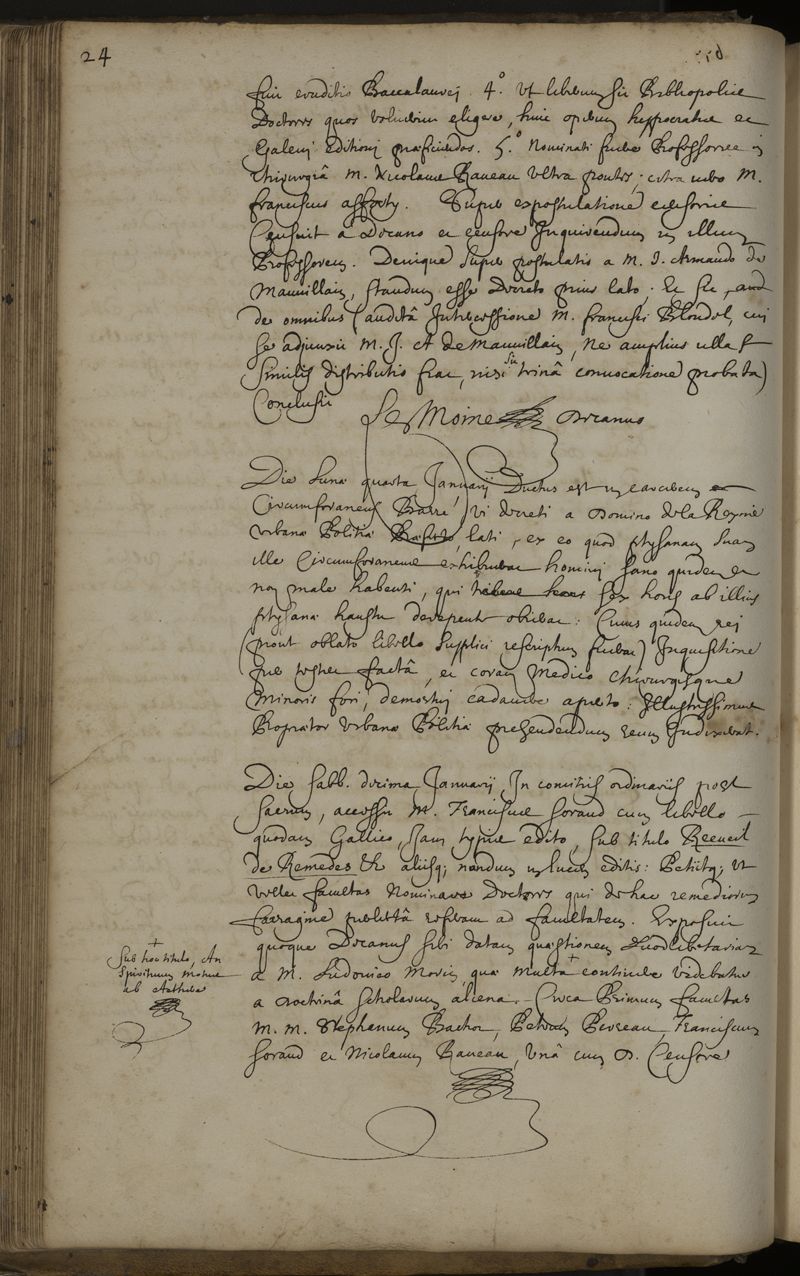 24
sui eruditis Baccalaureij. 4.° Vt liberum sit Bibliopolae
Doctores quos voluerim eligere, huic operum hyppocratis et
Galenij Editionij praeficiendos. 5.° Nominati fuere Professores in
Chirurgiâ M. Nicolaus Raveau Vltra pontes; citra vero M.
franciscus afforty. Super expostulatione censoriae
Censuit a Decano et censore Inquirendum in illum
Professorem. Denique super postulatis a M. J. Armando de
Mauvillain, standum esse Decreto prius lato. Et sic, and
de omnibus (auditâ Intercessione M. francisci Blondel, cui
se adjunxit M. J. A de Mauvillain, Ne amplius ulla
similis distributio fiat, nisi sit trinâ convocatione probata)
Conclusit
Le Moine Decanus
Die Lunae quarta Januarij Ductus est in carcerem
Circumforaneus Barri, vi decreti a Domino de la Reynie
Vrbanae Politiae lati, ex eo quod ptysanam suam
ille Circumforaneus exhibuerat hominij sano quidem et
non male habenti, qui sex horis ab illius
ptysanae haustu derepente obierat: Cuius quidem rej
(prout oblato libello supplici rescriptum fuerat) Inquisitione
per testes factâ, et coram Medico chirurgisque
Minoris fori, demortuj cadavere aperto: Illustrissimus
Propraetor Vrbanae Politiae prehendendum reum Indixerat.
Die Sabb. decima Januarij, In comitiis ordinariis post
sacrum, accessit M. Franciscus Soraud cum libello
quodam Gallico, Iam typis edito, sub titulo Recueil
de Remedes &c aliisq; nondum in lucem editis: Petiitq; vt
vellet facultas Nominare Doctores qui de hac remediorum
farragine publicâ referrent ad facultatem. Exposuit
quoque Decanus sibi datam quaestionem Quodlibetariam
a M. Ludovico Morin, quae multa + continere videbatur
a doctrinâ scholarum aliena. Circa Primum facultas
M. M. Stephanum Bachot, Petrum Perreau, Franciscum
Soraud et Nicolaum Raveau, vnâ cum D. Censore
+
Sub hoc titulo, An
Spirituum motus
ab Aethere